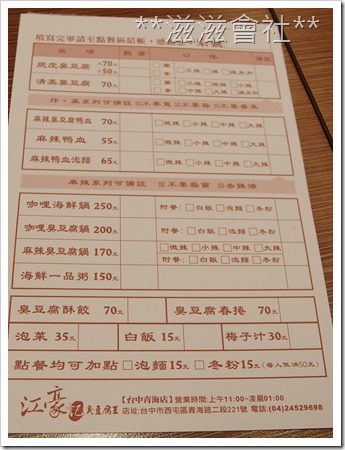 **滋滋會社**
填寫完畢請至點餐區結帳，感
品項 數量 口味 備註
脆皮臭豆腐 大70元 小50元
清蒸臭豆腐 70元
炸、蒸系列可備註 不要蔥 不要蒜 不要香菜
麻辣臭豆腐鴨血 70元 □微辣 □小辣 □中辣 □大辣
麻辣鴨血 55元 □微辣 □小辣 □中辣 □大辣
麻辣鴨血泡麵 65元 □微辣 □小辣 □中辣 □大辣
麻辣系列可備註 不要蒜苗 去辣油
咖哩海鮮鍋 250元 附餐：□白飯 □泡麵 □冬粉
咖哩臭豆腐鍋 200元 附餐：□白飯 □泡麵 □冬粉
麻辣臭豆腐鍋 170元 □微辣 □小辣 □中辣 □大辣
附餐：□白飯 □泡麵 □冬粉
海鮮一品粥 150元
臭豆腐酥餃 70元 臭豆腐春捲 70元
泡菜 35元 白飯 15元 梅子汁 30元
點餐均可加點 □泡麵 15元 □冬粉 15元 (每人低消50元)
江豪記臭豆腐王
【台中青海店】營業時間:上午11:00~凌晨01:00
店址:台中市西屯區青海路二段221號 電話:(04)24529698